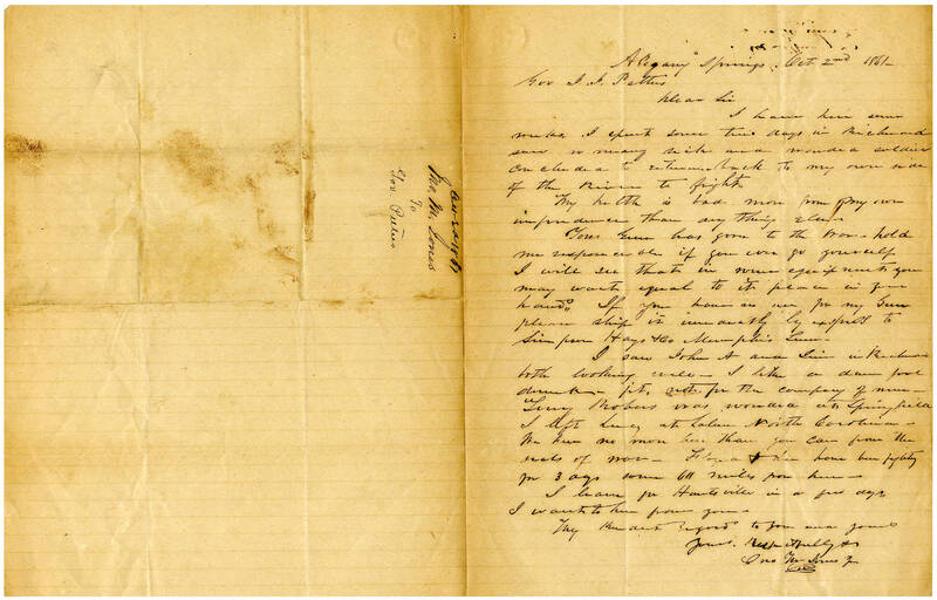 Mr. M. Jones
To
Gov Pettus
Alegany Springs, Oct 2nd 1861
Gov J. J. Pettus
Dear Sir
I have been some
weeks. I spent some two days in Richmond
saw so many sick and wounded soldiers
concluded to return back to my own side
of the River to fight.
My health is bad more from my own
imprudence than any thing else.
Your Gun has gone to the War - hold
me responsible if you can go yourself
I will see that in some equipments you
may want equal to its place in your
hands. If you have no use for my Gun
please ship it immediately by express to
Simpson Hays & Co Memphis Tenn.
I saw John A and in Richmond
both looking well - I like a damn fool
drunk - fit, not for the company of men -
Roberts was wounded at Springfield
I left at Salem North Carolina -
We hear no more here than you can from the
seats of war - have been fighting
for 3 days some 60 miles from here -
I leave for Huntsville in a few days
I want to hear from you -
My kindest Regards to you and yours
Yours Respectfully
Jno M. Jones